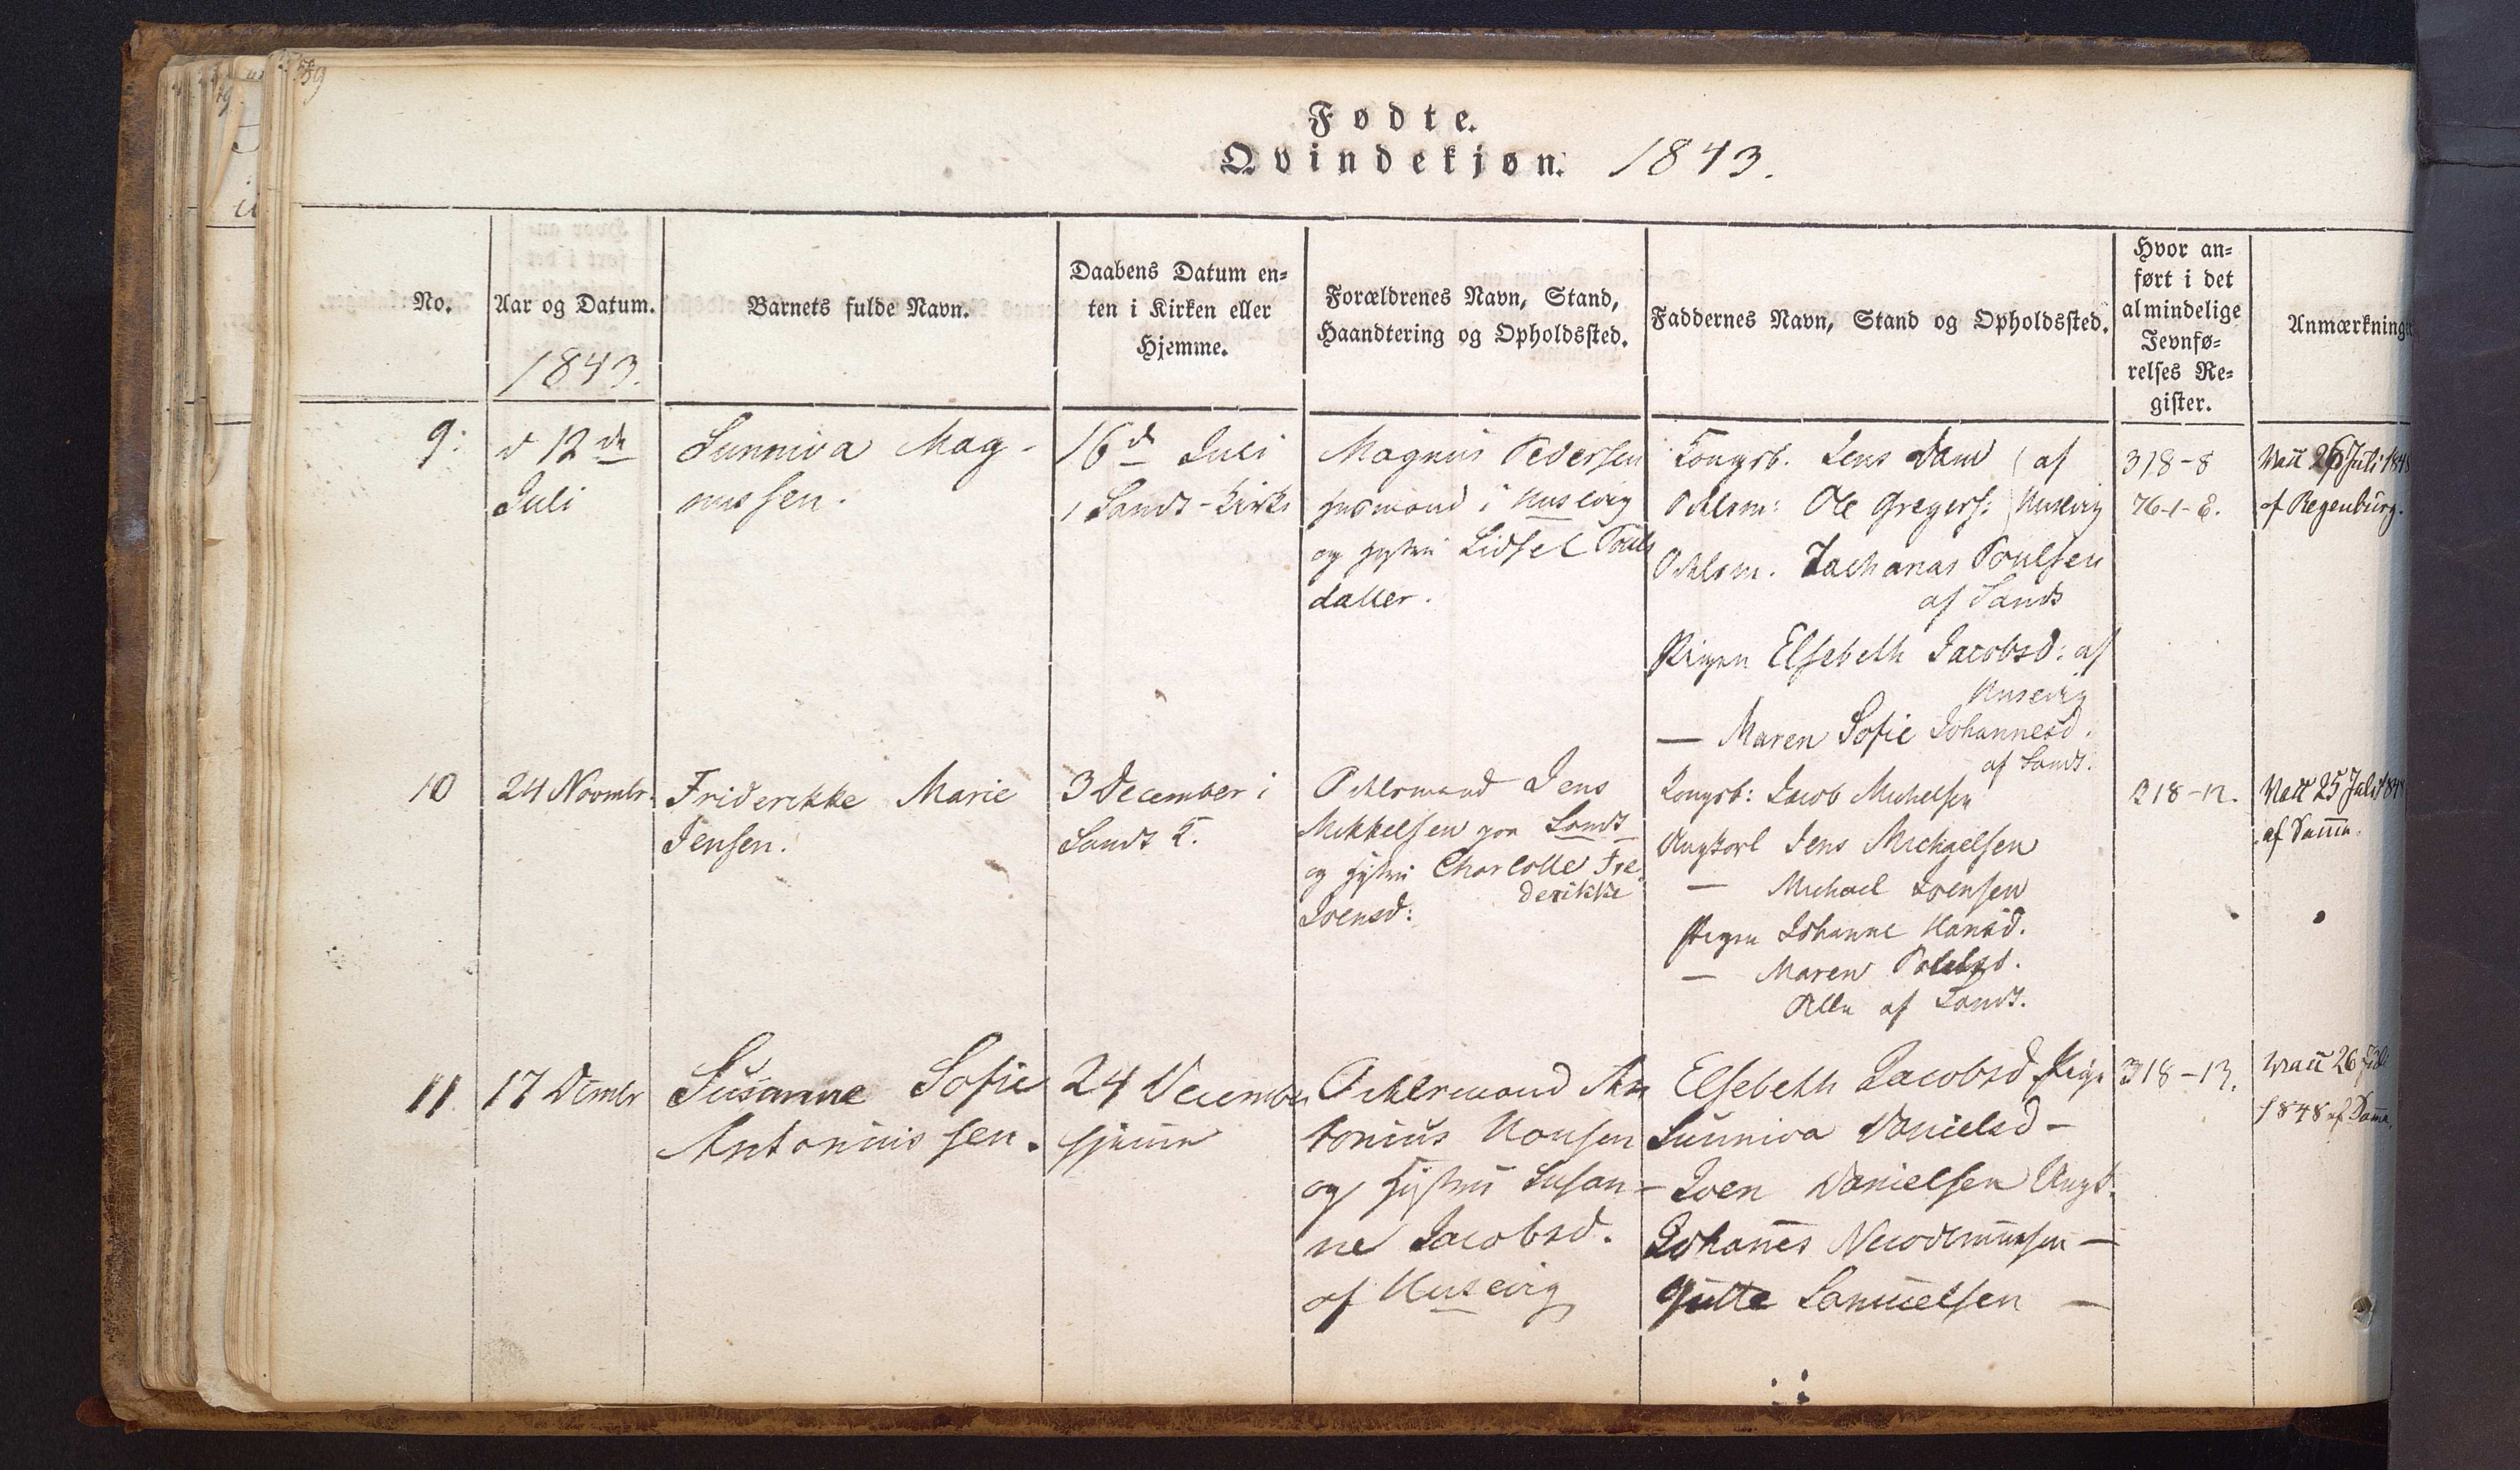 59
Fødte.
Qvindekjøn. 1843.
No.
Aar og Datum.
1843.
Barnets fulde Navn.
Daabens Datum en=
ten i Kirken eller
Hjemme.
Forældrenes Navn, Stand,
Haandtering og Opholdssted.
Faddernes Navn, Stand og Opholdssted.
Hvor an=
ført i det
almindelige
Jevnfø=
relses Re=
gister.
Anmærkninge
9.
d 12te
Juli
Sunniva Mag-
nussen.
16d Juli
i Sands-Kirke
Magnus Pedersen
Husmand i Husevig
og Hustru Lidsel Pouls
datter.
Kongsb. Jens Dam
Odelsm: Ole Gregers:
af
Husevig
Odelsm. Zacharias Poulsen
af Sand
Pigen Elsebeth Jacobsd: af
Husevig
— Maren Sofie Johannesd.
af Sand.
318-8
76-1-8.
Vacc 26 Juli 1848
af Regenburg.
10
24 Novmbr.
Friderikke Marie
Jensen.
3 December i
Sands K.
Odelsmand Jens
Mikkelsen paa Sand
og Hustru Charlotte Fre
derikke
Joensd:
Kongsb: Jacob Michelsen
Ungkarl Jens Michaelsen
— Michael Joensen
Pigen Johanne Hansd.
— Maren
Alle af Sand.
318-12.
Vacc 25 Juli 1848
af Samme.
11.
17 Dcmbr
Susanne Sofie
Antoniussen.
24 December
hjemme
Odelsmand An
tonius Hansen
og Hustru Susan-
ne Jacobsd.
af Husevig
Elsebeth Jacobsd Pige
Sunniva Danielsd —
Joen Danielsen Ungk.
Johannes Nicodemussen —
Gutte Samuelsen —
318-13.
Vacc 26 Juli
1848 af Samme.